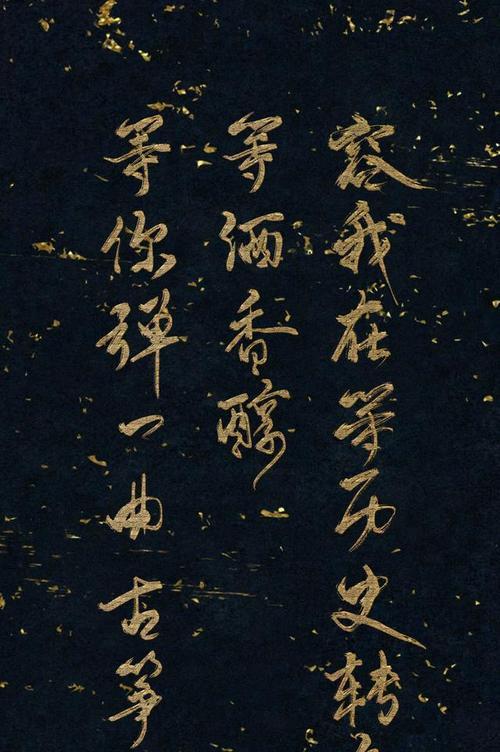 容我在等历史转
等酒香醇
等你弹一曲古筝